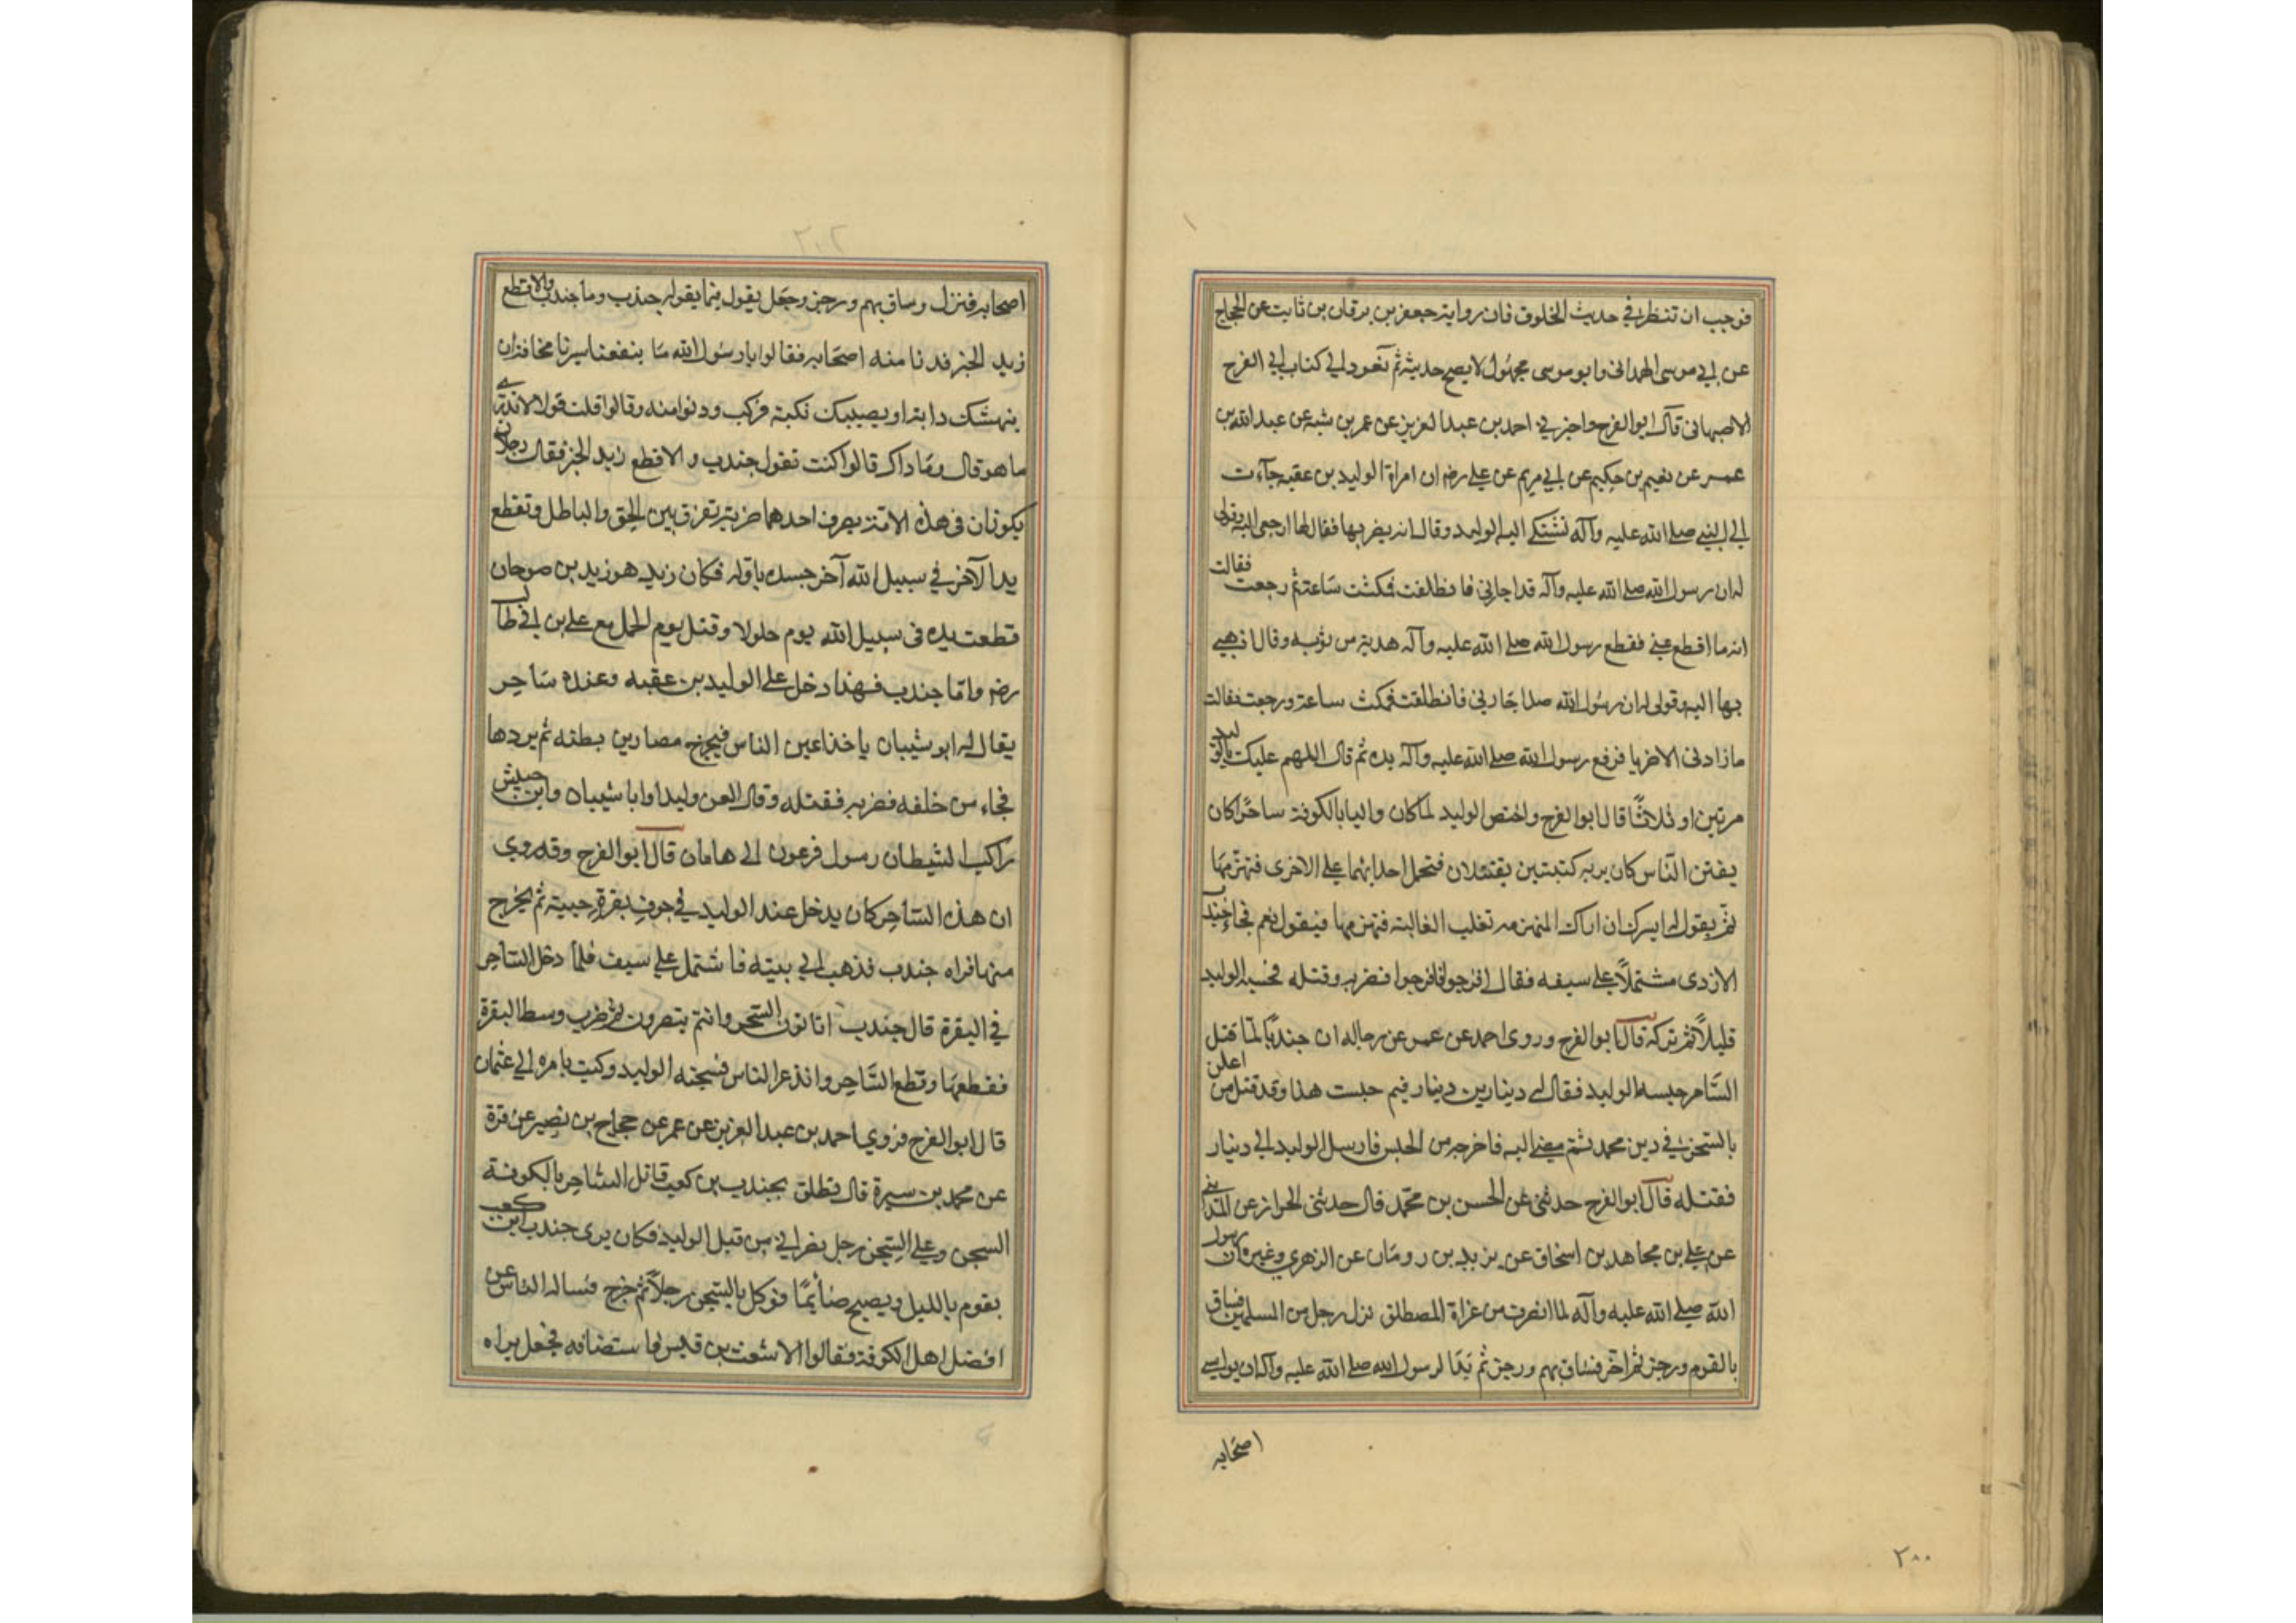 فوجب ان تنظر في حديث الخلوق فان رواية جعفر بن برقان بن ثابت عن الحجاج
عن ابي موسى الهمداني وابو موسى مجهول لا يصح حديثه ثم نعود الي كتاب ابي الفرج
الاصبهاني قال ابو الفرج واخبرني احمد بن عبد العزيز عن عمر بن شبه عن عبد الله بن
عمر عن نعيم بن حكيم عن ابي مريم عن علي رضه ان امراة الوليد بن عقبه جآءت
الي النبي صلي الله عليه وآله تشتكي اليه الوليد وقال انه يضربها فقال لها ارجعي اليه وقولي
له ان رسول الله صلي الله عليه وآله قد اجارني فانطلقت فمكثت ساعة ثم رجعت فقالت
انه ما اقطع عني فقطع رسول الله صلي الله عليه وآله هدبة من ثوبه وقال اذهبي
بها اليه وقولي له ان رسول الله صلا جارني فانطلقت فمكث ساعة ورجعت فقالت
ما زادني الا ضربا فرفع رسول الله صلي الله عليه وآله يده ثم قال اللهم عليك بالوليد
مرتين او ثلاثًا قال ابو الفرج واختص الوليد لما كان واليا بالكوفة ساحرًا كان
يفتن الناس كان يريه كتبتين يقتتلان فتحمل احداهما علي الاخرى فتهزمها
ثم يقول له ايسرك ان اراك المنهزمه تغلب الغالبة فتهزمها فيقول نعم فجاء جندب
الازدى مشتملًا علي سيفه فقال افرجوا فافرجوا فضربه وقتله فحبسه الوليد
قليلًا ثم تركه قال ابو الفرج وروى احمد عن عمر عن رجاله ان جندبًا لما قتل
الساحر حبسه الوليد فقال له دينار بن دينار فيم حبست هذا وقد قتل من اعلن
بالسحر في دين محمد ثم مضي اليه فاخرجه من الحبس فارسل الوليد الي دينار
فقتله قال ابو الفرج حدثني عن الحسن بن محمد قال حدثني الخراز عن المدائني
عن علي بن مجاهد بن اسحاق عن يزيد بن رومان عن الزهري وغيره ان رسول
الله صلي الله عليه وآله لما انصرف من غزاة المصطلق نزل رجل من المسلمين فساق
بالقوم ورجز ثم اخر فساق بهم ورجز ثم بدا لرسول الله صلي الله عليه وآله ان يواسي
اصحابه
٢٠٠
٢٠٢
اصحابه فنزل وساق بهم ورجز وجعل يقول فيما يقوله جندب وما جندب والاقطع
زيد الخير فدنا منه اصحابه فقالوا يا رسول الله ما ينفعنا سيرنا مخافة ان
ينهشك دابة او يصيبك نكبة فركب ودنوا منه وقالوا قلت قولا لا ندري
ما هو قال وما ذاك قالوا كنت تقول جندب والاقطع زيد الخير فقال رجلان
يكونان في هذه الامة يضرب احدهما ضربة تفرق بين الحق والباطل وتقطع
يد الآخر في سبيل الله آخر جسده باوله فكان زيد هو زيد بن صوحان
قطعت يده في سبيل الله يوم جلولا وقتل يوم الجمل مع علي بن ابي طالب
رضه واما جندب فهذا دخل علي الوليد بن عقبه وعنده ساحر
يقال له ابو شيبان ياخذ اعين الناس فيخرج مصارين بطنه ثم يردها
فجاء من خلفه فضربه فقتله وقال العن وليدا وابا شيبان وابن حبيش
راكب الشيطان رسول فرعون الي هامان قال ابو الفرج وقد روي
ان هذا الساحر كان يدخل عند الوليد في جوف بقرة حيية ثم يخرج
منها فراه جندب فذهب الي بيته فاشتمل علي سيف فلما دخل الساحر
في البقرة قال جندب اتاتون السحر وانتم تبصرون ثم ضرب وسط البقرة
فقطعها وقطع الساحر وانذعر الناس فسجنه الوليد وكتب بامره الي عثمان
قال ابو الفرج فروي احمد بن عبد العزيز عن عمر عن حجاج بن نصير عن قرة
عن محمد بن سيرة قال نطلق بجندب بن كعب قاتل الساحر بالكوفة
السجن وعلي السجن رجل نصراني من قبل الوليد فكان يرى جندب ابن كعب
يقوم بالليل ويصبح صائمًا فوكل بالسجن رجلًا ثم خرج فسال الناس عن
افضل اهل الكوفة فقالوا الاشعث بن قيس فاستضافه فجعل يراه